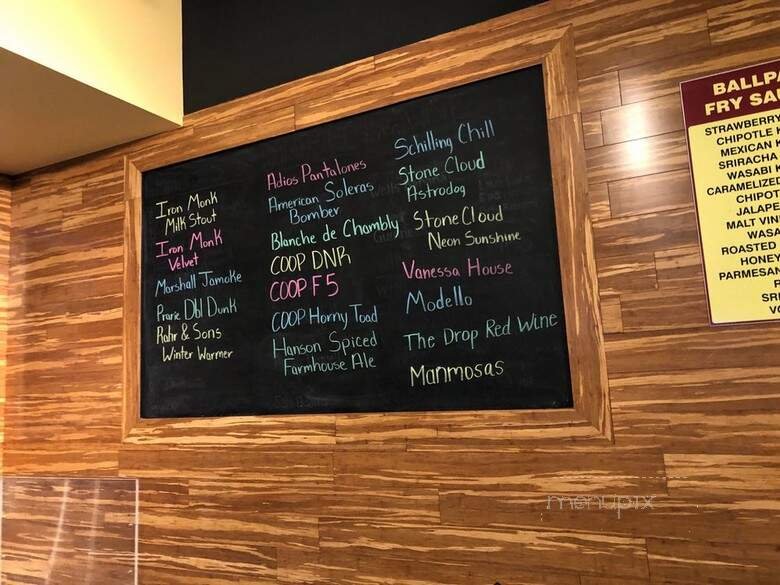 Iron Monk
Milk Stout
Iron Monk
Velvet
Marshall Jamoke
Prarie Dbl Dunk
Rahr & Sons
Winter Warmer
Adios Pantalones
American Soleras
Bomber
Blanche de Chambly
COOP DNR
COOP F5
COOP Horny Toad
Hanson Spiced
Farmhouse Ale
Schilling Chill
Stone Cloud
Astrodog
Stone Cloud
Neon Sunshine
Vanessa House
Modello
The Drop Red Wine
Manmosas
BALLPA
FRY SAU
STRAWBERRY
CHIPOTLE K
MEXICAN K
SRIRACHA
WASABI K
CARAMELIZED
CHIPOT
JALAPE
MALT VIN
WASA
ROASTED
HONEY
PARMESAN
R
SRI
VO
menupix